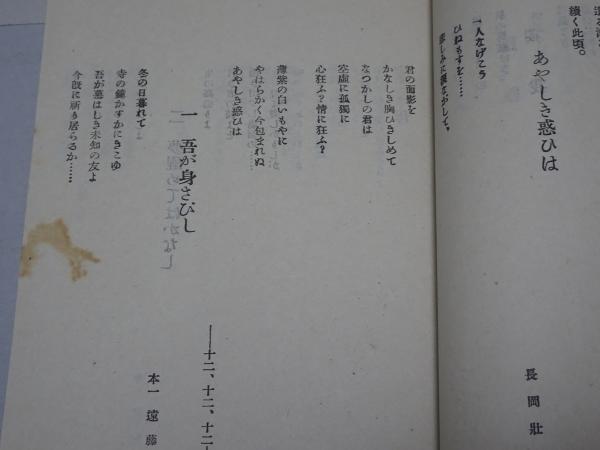 續く此頃。
あやしき惑ひは
長岡壯
一人なげこう
ひねもすを……
君の面影を
かなしき胸ひきしめて
なつかしの君は
空虚に孤獨に
心狂ふ？情に狂ふ？
薄紫の白いもやに
やはらかく今包まれぬ
あやしき惑ひは
——十二、十二、十二
一 吾が身さびし
本一 遠藤
冬の日暮れて
寺の鐘かすかにきこゆ
吾が慕はしき未知の友よ
今既に祈り居らるか……